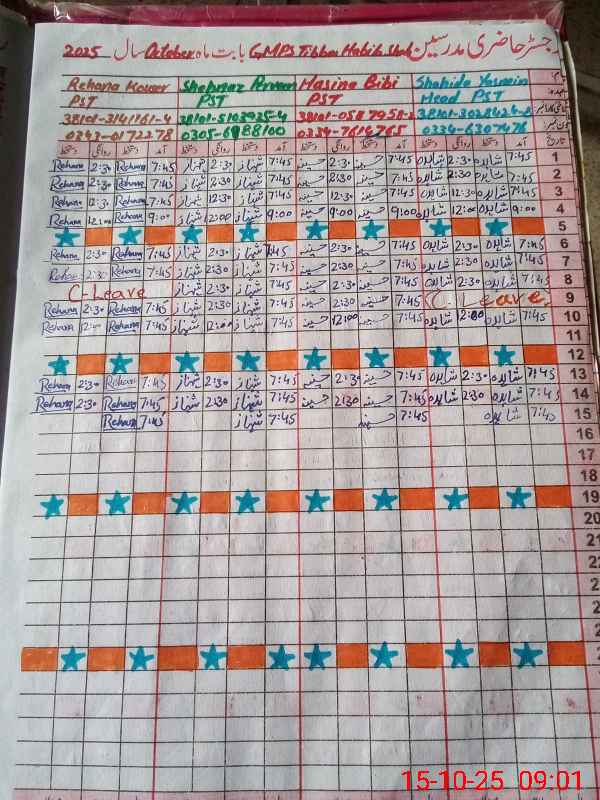 رجسٹر حاضری مدرسین GMPS Tibba Habib Shah بابت ماہ October سال 2025
Rehana Kouser Shehnaz Perveen Hasina Bibi Shahida Yasmein
PST PST PST Head PST
38101-3141161-4 38101-5103925-4 38101-0587958-2 38101-3028424-8
0343-0172278 0305-6988100 0334-7614765 0334-6307476
دستخط روانگی دستخط آمد دستخط روانگی دستخط آمد دستخط روانگی دستخط آمد دستخط روانگی دستخط آمد تاریخ
Rehana 2:30 Rehana 7:45 شہناز 2:30 شہناز 7:45 حسینہ 2:30 حسینہ 7:45 شاہدہ 2:30 شاہدہ 7:45 1
Rehana 2:30 Rehana 7:45 شہناز 2:30 شہناز 7:45 حسینہ 2:30 حسینہ 7:45 شاہدہ 2:30 شاہدہ 7:45 2
Rehana 12:30 Rehana 7:45 شہناز 12:30 شہناز 7:45 حسینہ 12:30 حسینہ 7:45 شاہدہ 12:30 شاہدہ 7:45 3
Rehana 12:00 Rehana 9:00 شہناز 12:00 شہناز 9:00 حسینہ حسینہ 9:00 شاہدہ 12:00 شاہدہ 9:00 4
5
Rehana 2:30 Rehana 7:45 شہناز 2:30 شہناز 7:45 حسینہ 2:30 حسینہ 7:45 شاہدہ 2:30 شاہدہ 7:45 6
Rehana 2:30 Rehana 7:45 شہناز 2:30 شہناز 7:45 حسینہ 2:30 حسینہ 7:45 شاہدہ 2:30 شاہدہ 7:45 7
C-Leave شہناز 2:30 شہناز 7:45 حسینہ 2:30 حسینہ 7:45 شاہدہ 2:30 شاہدہ 7:45 8
Rehana 2:30 Rehana 7:45 شہناز 2:30 شہناز 7:45 حسینہ 2:30 حسینہ 7:45 C. Leave 9
Rehana 12:00 Rehana 7:45 شہناز 12:00 شہناز 7:45 حسینہ 12:00 حسینہ 7:45 شاہدہ 12:00 شاہدہ 7:45 10
12
Rehana 2:30 Rehana 7:45 شہناز 2:30 شہناز 7:45 حسینہ 2:30 حسینہ 7:45 شاہدہ 2:30 شاہدہ 7:45 13
Rehana 2:30 Rehana 7:45 شہناز 2:30 شہناز 7:45 حسینہ 2:30 حسینہ 7:45 شاہدہ 2:30 شاہدہ 7:45 14
Rehana 7:45 شہناز 7:45 حسینہ 7:45 شاہدہ 7:45 15
16
17
18
19
20
15-10-25 09:01